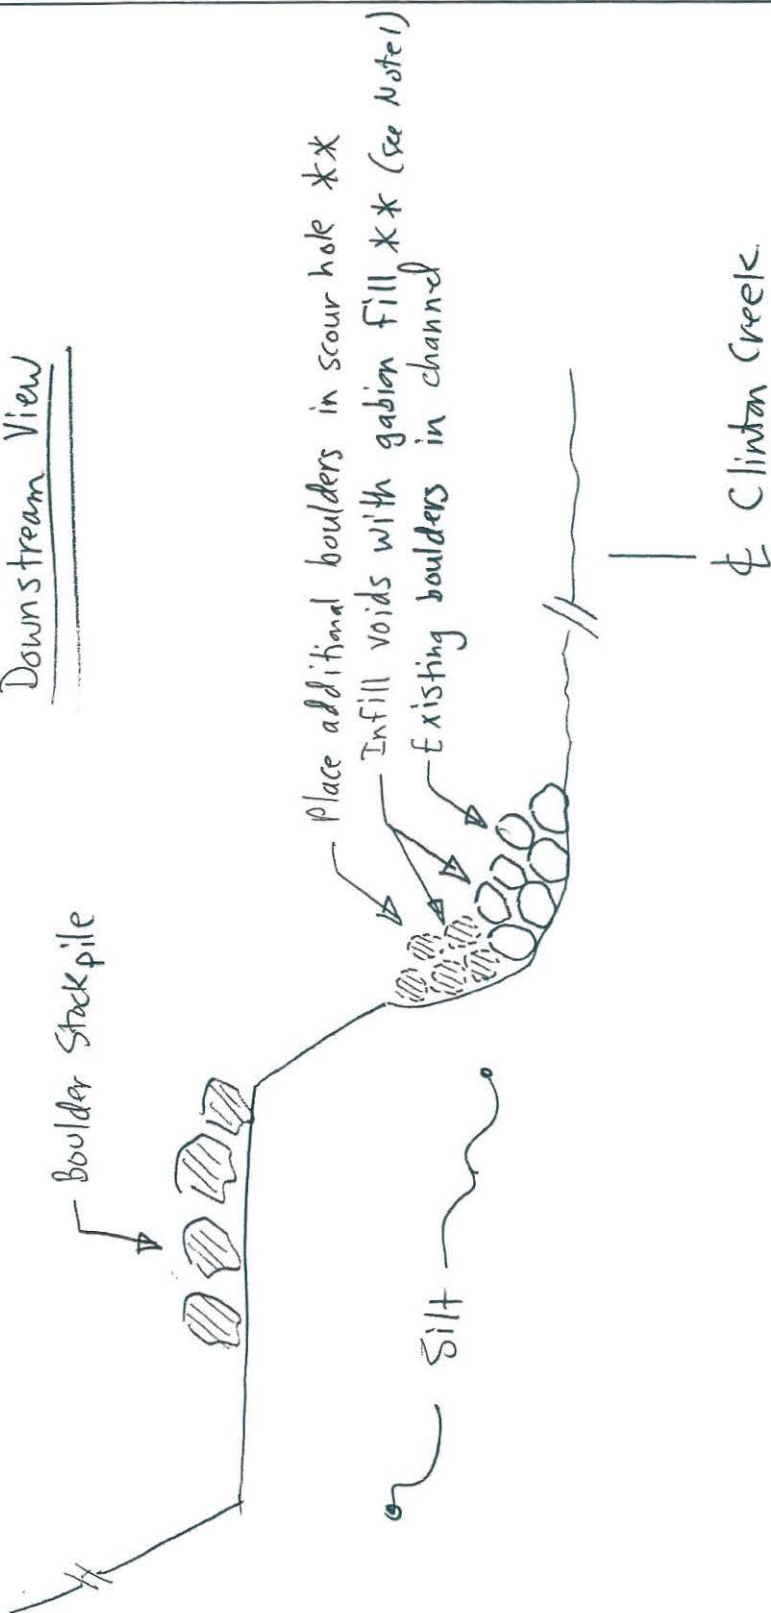 Downstream View
Boulder Stockpile
Place additional boulders in scour hole **
Infill voids with gabion fill ** (see Note 1)
Existing boulders in channel
Silt
℄ Clinton Creek